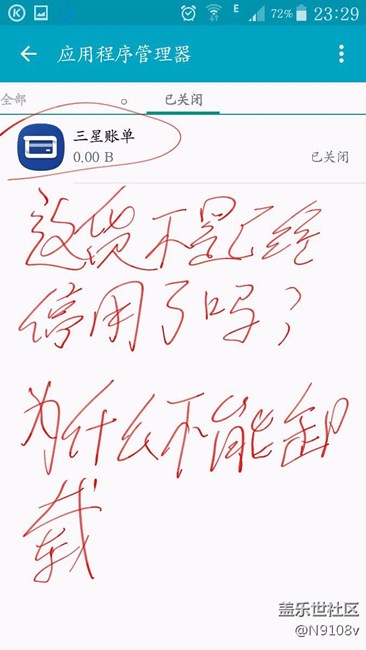 E 72% 23:29
应用程序管理器
全部 已关闭
三星账单
0.00 B 已关闭
这货不是已经
停用了吗？
为什么不能卸
载
盖乐世社区
@N9108v